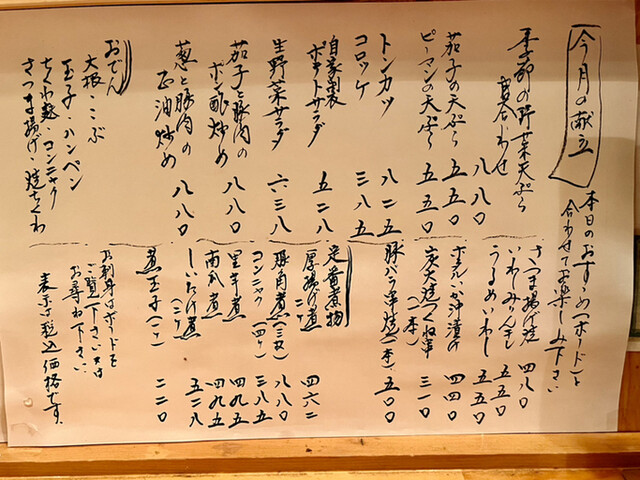 今月の献立
本日のおすすめ(ボード)と
合わせてお楽しみ下さい
季節の野菜天ぷら
盛合わせ 八八〇
茄子の天ぷら 五五〇
ピーマンの天ぷら 五五〇
トンカツ 八二五
コロッケ 三八五
自家製
ポテトサラダ 五二八
生野菜サラダ 六三八
茄子と豚肉の
ポン酢炒め 八八〇
葱と豚肉の
正油炒め 八八〇
おでん
大根・こぶ
玉子・ハンペン
ちくわ麩・コンニャク
さつま揚げ・焼ちくわ
さつま揚げ焼 四八〇
いわしみりん干 五五〇
うるめいわし 五五〇
ホタルイカ沖漬 四四〇
炭火焼つくね串
(一本) 三一〇
豚バラ串焼(一本) 五〇〇
定番煮物
厚揚げ煮
二ケ 四六二
豚角煮(三枚) 八八〇
コンニャク(四ケ) 三八五
里芋煮 四九五
南瓜煮 四九五
しいたけ煮(二ケ) 五二八
煮玉子(一ケ) 二二〇
お刺身はボードを
ご覧下さい又は
お尋ね下さい。
表示は税込価格です。